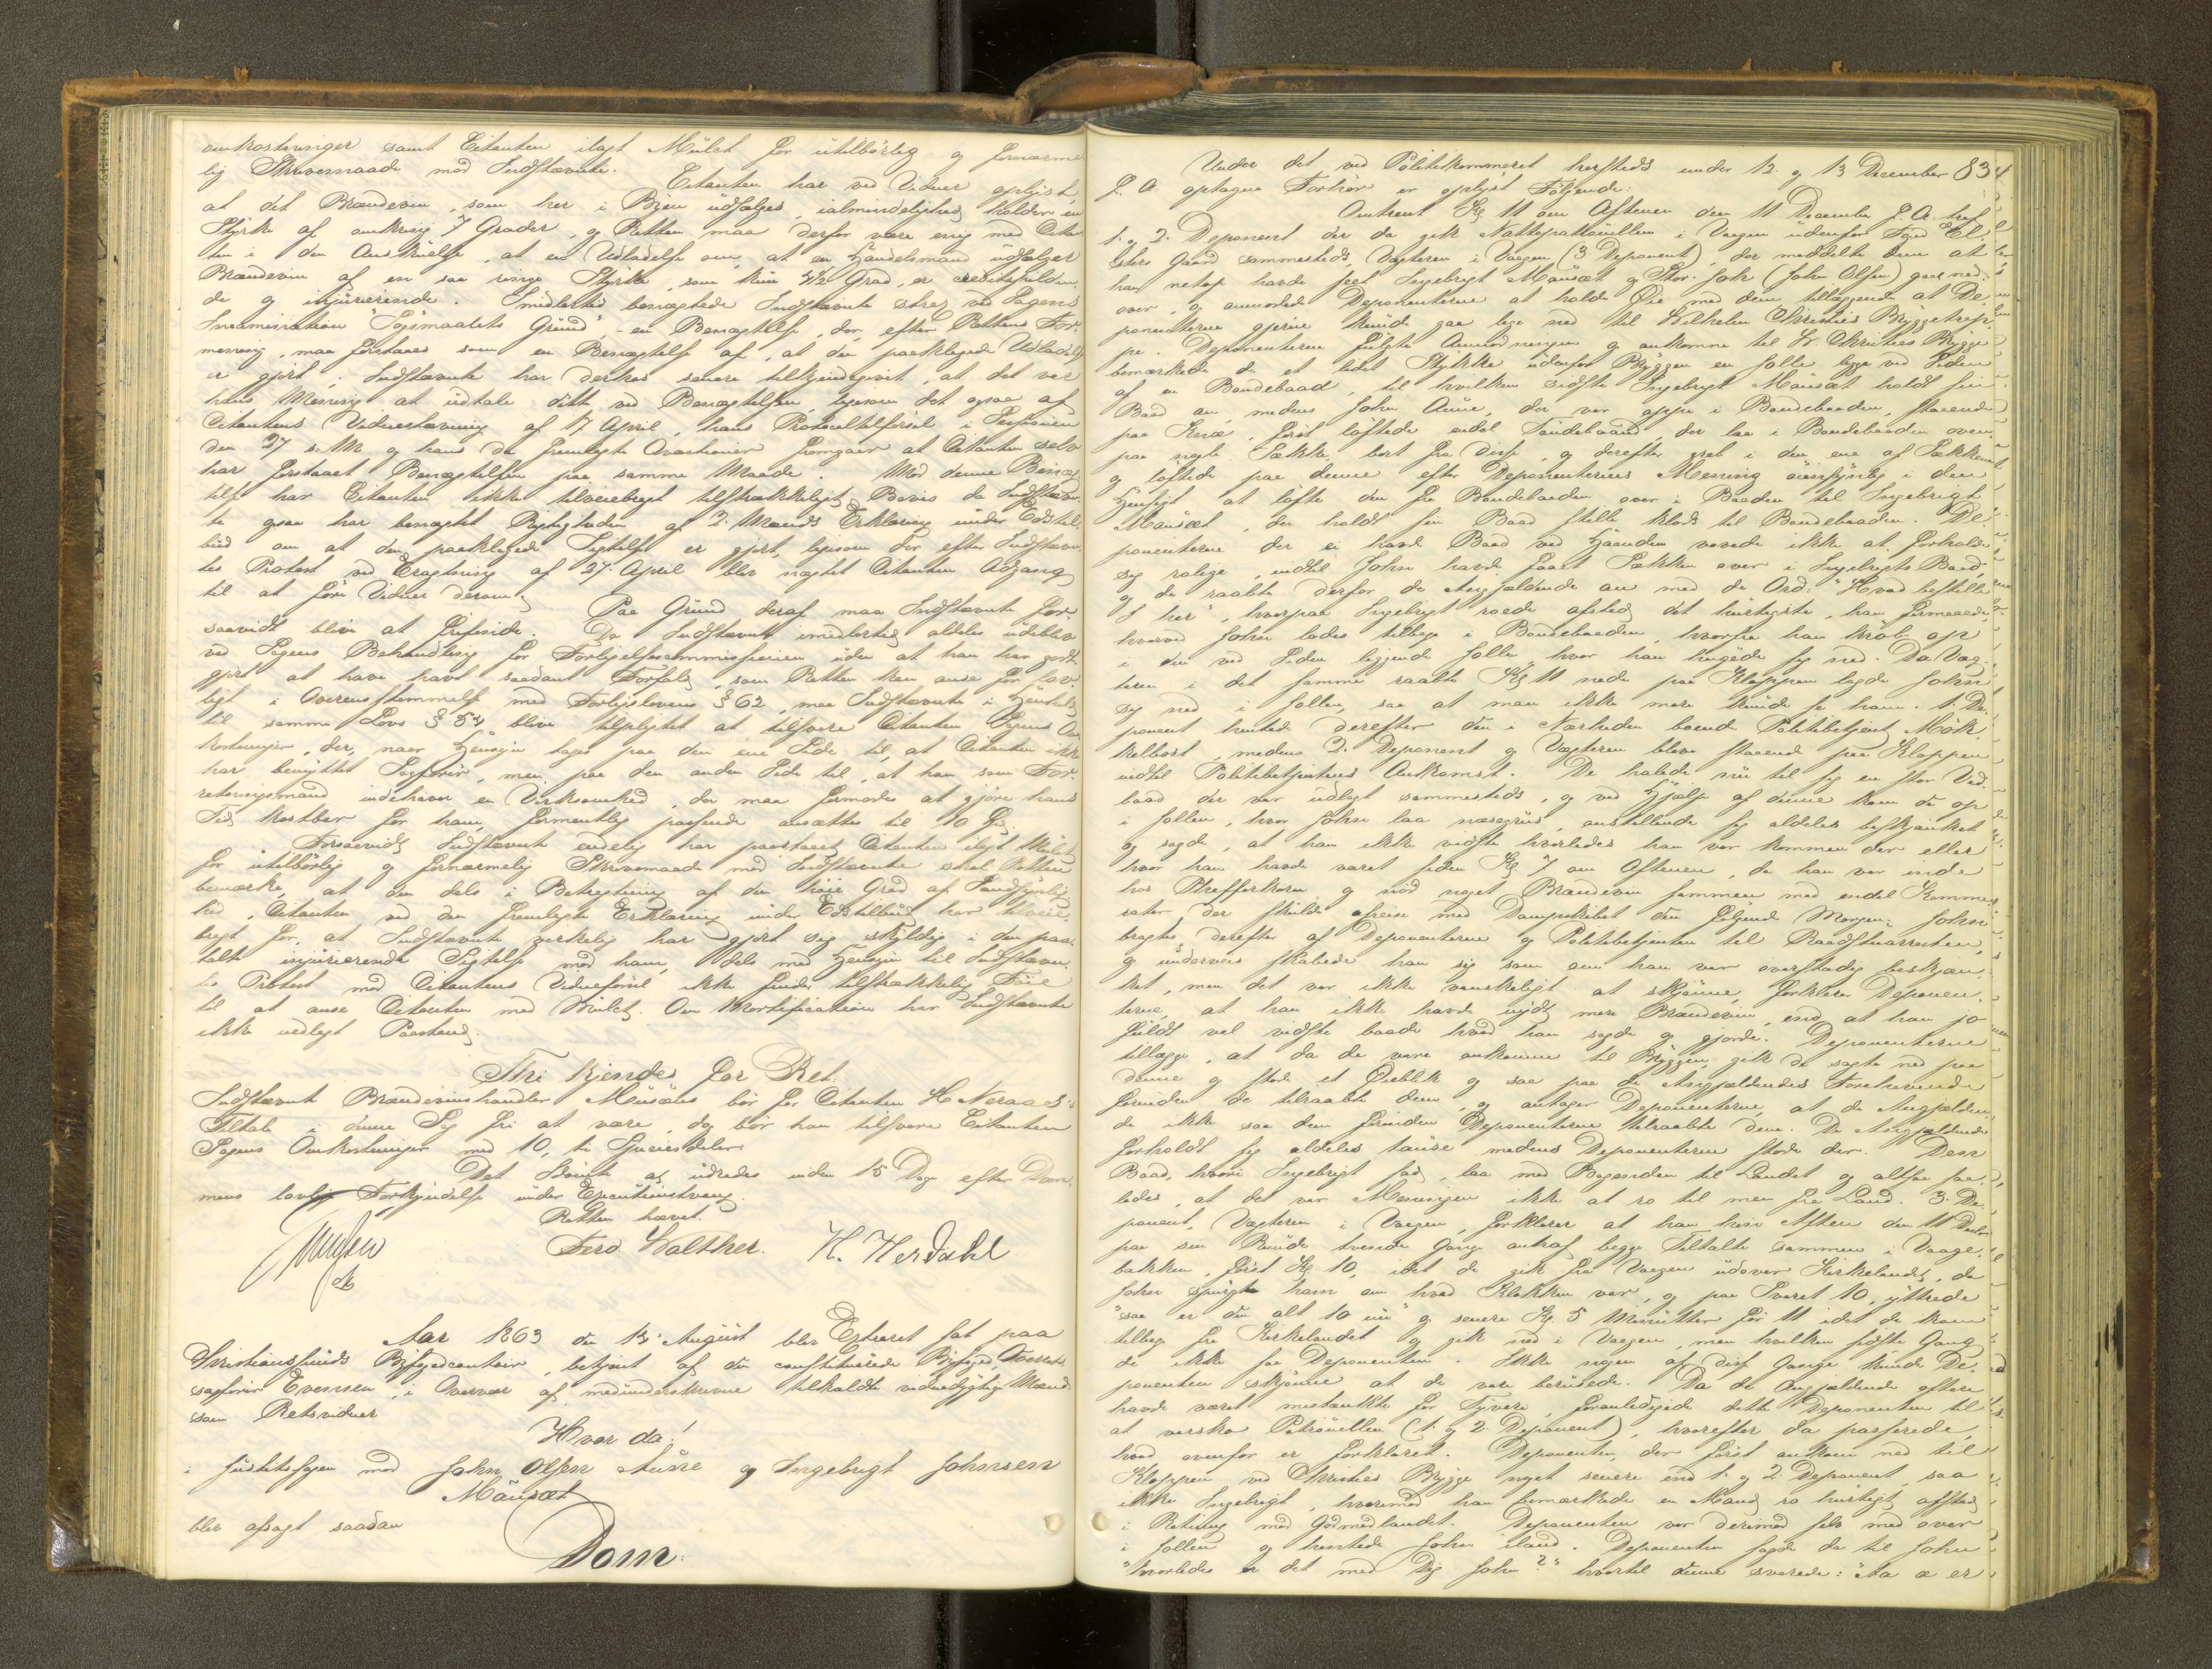 omkostninger samt Citanten ilagt Mulct for utilbörlig og fornærme
lig Skrivemaade mod Indstævnte. Citanten har ved Vidner oplyst,
at det Brændeviin, som her i Byen udsælges, ialmindelighed holder en
Styrke af omkring 7 Grader, og Retten maa derfor være enig med Citan
ten i den Anskuelse, at en Udtadelse om, at en Handelsmand udsælger
Brændeviin af en saa ringe Styrke, som kun 4½ Grad, er creditspilden
de og injurierende. Imidlertid benægtede Indstævnte strax ved Sagens
Incamination "Sögsmaalets Grund", - en Benægtelse, der, efter Rettens For
mening, maa forstaaes som en Benægtelse af, at den paaklagede Udladelse
er gjort; Indstævnte har derhos senere tilkjendegivet, at det var
hans Mening at udtale dette ved Benægtelsen, ligesom det ogsaa af
Citantens Vidnestævning af 17 April, hans Protocoltilførsel i Sessionen
den 27 s. M. og hans da fremlagte Qvæstioner fremgaar at Citanten selv
har forstaaet Benægtelsen paa samme Maade. Mod denne Benæg
telse har Citanten ikke tilveiebragt tilstrækkeligt Bevis da Indstævn
te ogsaa har benægtet Rigtigheden af 2 Mænds Erklæring under Edstil
bud om at den paaklagede Sigtelse er gjort, ligesom der efter Indstævn
tes Protest ved Eragtning af 27 April blev nægtet Citanten Adgang
til at føre Vidner derom.
Paa Grund deraf maa Indstævnte for
saavidt blive at frifinde. Da Indstævnte imidlertid aldeles udeblev
ved Sagens Behandling for Forligelsescommissionen uden at han har godt
gjort at have havt saadant Forfald, som Retten kan anse for lov
ligt i Overensstemmelse med Forligslovens § 62, maa Indstævnte i Henhold
til samme Lovs § 54 blive tilpligtet at tilsvare Citanten Sagens Om
kostninger, der, naar Hensyn tages paa den ene Side til, at Citanten ikke
har benyttet Sagførér, men paa den anden Side til, at han som For
retningsmand indehaver en Virksomhed, der maa formodes at gjöre hans
Tid kostbar for ham, formentlig passende ansættes til 10 Spd.
Forsaavidt Indstævnte endelig har paastaaet Citanten ilagt Mulct
for utilbörlig og fornærmelig Skrivemaade mod Indstævnte skal Retten
bemærke, at den dels i Betragtning af den høie Grad af Sandsynlig
hed, Citanten ved den fremlagte Erklæring under Edstilbud har tilveie
bragt for, at Indstævnte virkelig har gjort sig skyldig i den paa
talte injurierende Sigtelse mod ham, dels med Hensyn til Indstævn
tes Protest mod Citantens Vidneførsel ikke finder tilstrækkelig Føie
til at anse Citanten med Mulct. Om Mortification har Indstævnte
ikke nedlagt Paastand.
Thi kjendes for Ret:
Indstævnte Brændevinshandler Musæus bør for Citanten H. Neraas's
Tiltale i denne Sag fri at være, dog bør han tilsvare Citanten
Sagens Omkostninger med 10, ti Speciesdaler.
Det Idömte at udredes inden 15 Dage efter Dom
mens lovlige Forkyndelse under Executionstvang.
Retten hævet.
Ferd. Walther. H. Herdahl
Aar 1863 den 13 August blev Extraret sat paa
Christianssunds Byfogedcontoir, betjent af den constituerede Byfoged Overrets
sagfører Evensen, i Overvær af medunderskrevne tilkaldte vidnedygtige Mænd
som Retsvidner
Hvor da!
i Justitssagen mod John Olsen Aune og Ingebrigt Johnsen
Mausæt
blev afsagt saadan
Dom:
Under det ved Politikammeret hersteds under 12 og 13 December 834
f. A. optagne Forhør er oplyst Følgende:
Omtrent Kl 11 om Aftenen den 11 December f. A. traf
1. og 2. Deponent der da gik Nattepatrouillen i Vaagen udenfor
Gaard sammesteds, Vægteren i Vaagen (3 Deponent), der meddelte dem at
han netop havde seet Ingebrigt Mausæt og Stor-John (John Olsen) gaae ned
over, og anmodede Deponenterne at holde Öie med dem, tillæggende at De
ponenterne gjerne kunde gaa lige ned til Wilhelm Christies Bryggetrap
pe. Deponenterne fulgte Anmodningen og ankomne til Hr Christies Brygge
bemærkede de et lidet Stykke udenfor Bryggen en Jolle ligge ved Siden
af en Bondebaad, til hvilken sidste Ingebrigt Mausæt holdt sin
Baad an, medens John Aune, der var oppe i Bondebaaden, staaende
paa Knæ, først løftede endel Tøndebaand, der laa i Bondebaaden oven
paa nogle Sække, bort fra disse, og derefter greb i den ene af Sækkene
og løftede paa denne efter Deponenternes Mening øiensynlig i den
Hensigt at løfte den fra Bondebaaden over i Baaden til Ingebrigt
Mausæt, der holdt sin Baad stille klods til Bondebaaden. De
ponenterne der ei havde Baad ved Haanden vovede ikke at forholde
sig rolige, indtil John havde faaet Sækken over i Ingebrigts Baad,
og de raabte derfor de Angjældende an med de Ord: "Hvad bestille
I her", hvorpaa Ingebrigt roede afsted det hurtigste, han formaaede,
hvorved John lodes tilbage i Bondebaaden, hvorfra han kröb op
i den ved Siden liggende Jolle, hvor han lægede sig ned. Da Væg
teren i det samme raabte Kl 11 nede paa Kloppen lagde John
sig ned i Jollen, saa at man ikke mere kunde se ham. 1. De
ponent hentede derefter den i Nærheden boende Politibetjent Mök
kelbost, medens 2. Deponent og Vægteren bleve staaende paa Kloppen
indtil Politibetjentens Ankomst. De halede nu til sig en stor Ved
baad der var udlagt sammesteds, og ved Hjælp af denne kom de op
i Jollen, hvor John laa næsegrus, anstillende sig aldeles beskjænket
og sagde, at han ikke vidste hvorledes han var kommen der eller
hvor han havde været siden Kl 7 om Aftenen, da han var inde
hos Pfefferkorn og nød noget Brændeviin sammen med endel Kommes
sater, der skulde afreise med Dampskibet den følgende Morgen: John
bragtes derefter af Deponenterne og Politibetjenten til Raadstuarresten,
og underveis skabede han sig som om han var overstadig beskjæn
ket, men det var ikke vanskeligt at skjønne, forklarer Deponen
terne, at han ikke havde nydt mere Brændeviin, end at han jo
fuldt vel vidste baade hvad han sagde og gjorde. Deponenterne
tillægge, at da de vare ankomne til Bryggen, gik de sagte ned paa
denne og stode et Øieblik og saa paa de Angjældendes Forehavende
førinden de tilraabte dem, og antager Deponenterne, at de Angjælden
de ikke saa dem førinden Deponenterne tilraabte dem. De Angjældende
forholdt sig aldeles tause medens Deponenterne stode der. Den
Baad, hvori Ingebrigt sad, laa med Bagenden til Landet og altsaa saa
ledes, at det var Meningen ikke at ro til men fra Land. 3. De
ponent, Vægteren i Vaagen, forklarer at han hiin Aften den 11 Decbr
paa sin Runde tvende Gange antraf begge Tiltalte sammen i Vaage
bakken, først Kl. 10, idet de gik fra Vaagen udover Kirkelandet, da
John spurgte ham om hvad Klokken var, og paa Svaret 10, yttrede
"saa er den alt 10 nu" og senere Kl. 5 Minutter før 11 idet de kom
tilbage fra Kirkelandet og gik ned i Vaagen, men hvilken sidste Gang
de ikke saa Deponenten. Ikke nogen af disse Gange kunde De
ponenten skjønne at de vare berusede. Da de Angjældende oftere
havde været mistænkte for Tyveri, foranledigede dette Deponenten til
at varsko Patrouillen (1. og 2. Deponent), hvorefter da passerede,
hvad ovenfor er forklaret. Deponenten, der først ankom ned til
Kloppen ved Christies Brygge noget senere end 1. og 2. Deponent, saa
ikke Ingebrigt, hvorimod han bemærkede en Mand ro hurtigt afsted
i Retning mod Gomalandet. Deponenten var derimod selv med over
i Jollen og hentede John iland. Deponenten sagde da til John
"hvorledes er det med Dig John?" hvortil denne svarede: "Aa æ er